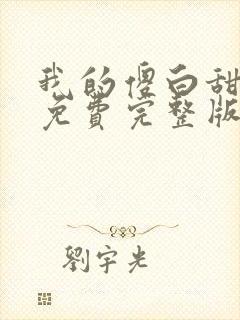 我的傻白甜
免費完整版
劉宇光